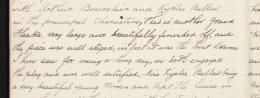 with Dion Boucicault and Kyrle Bellew
in the principal Characters, this is another Grand
Theatre very large and beautifully finished off and
the piece was well staged, in fact it was the best Drama
I have seen for many a long day, we both enjoyed
the play and was well satisfied, Miss Kyrle Bellew being
a very beautiful young Woman and kept the House in